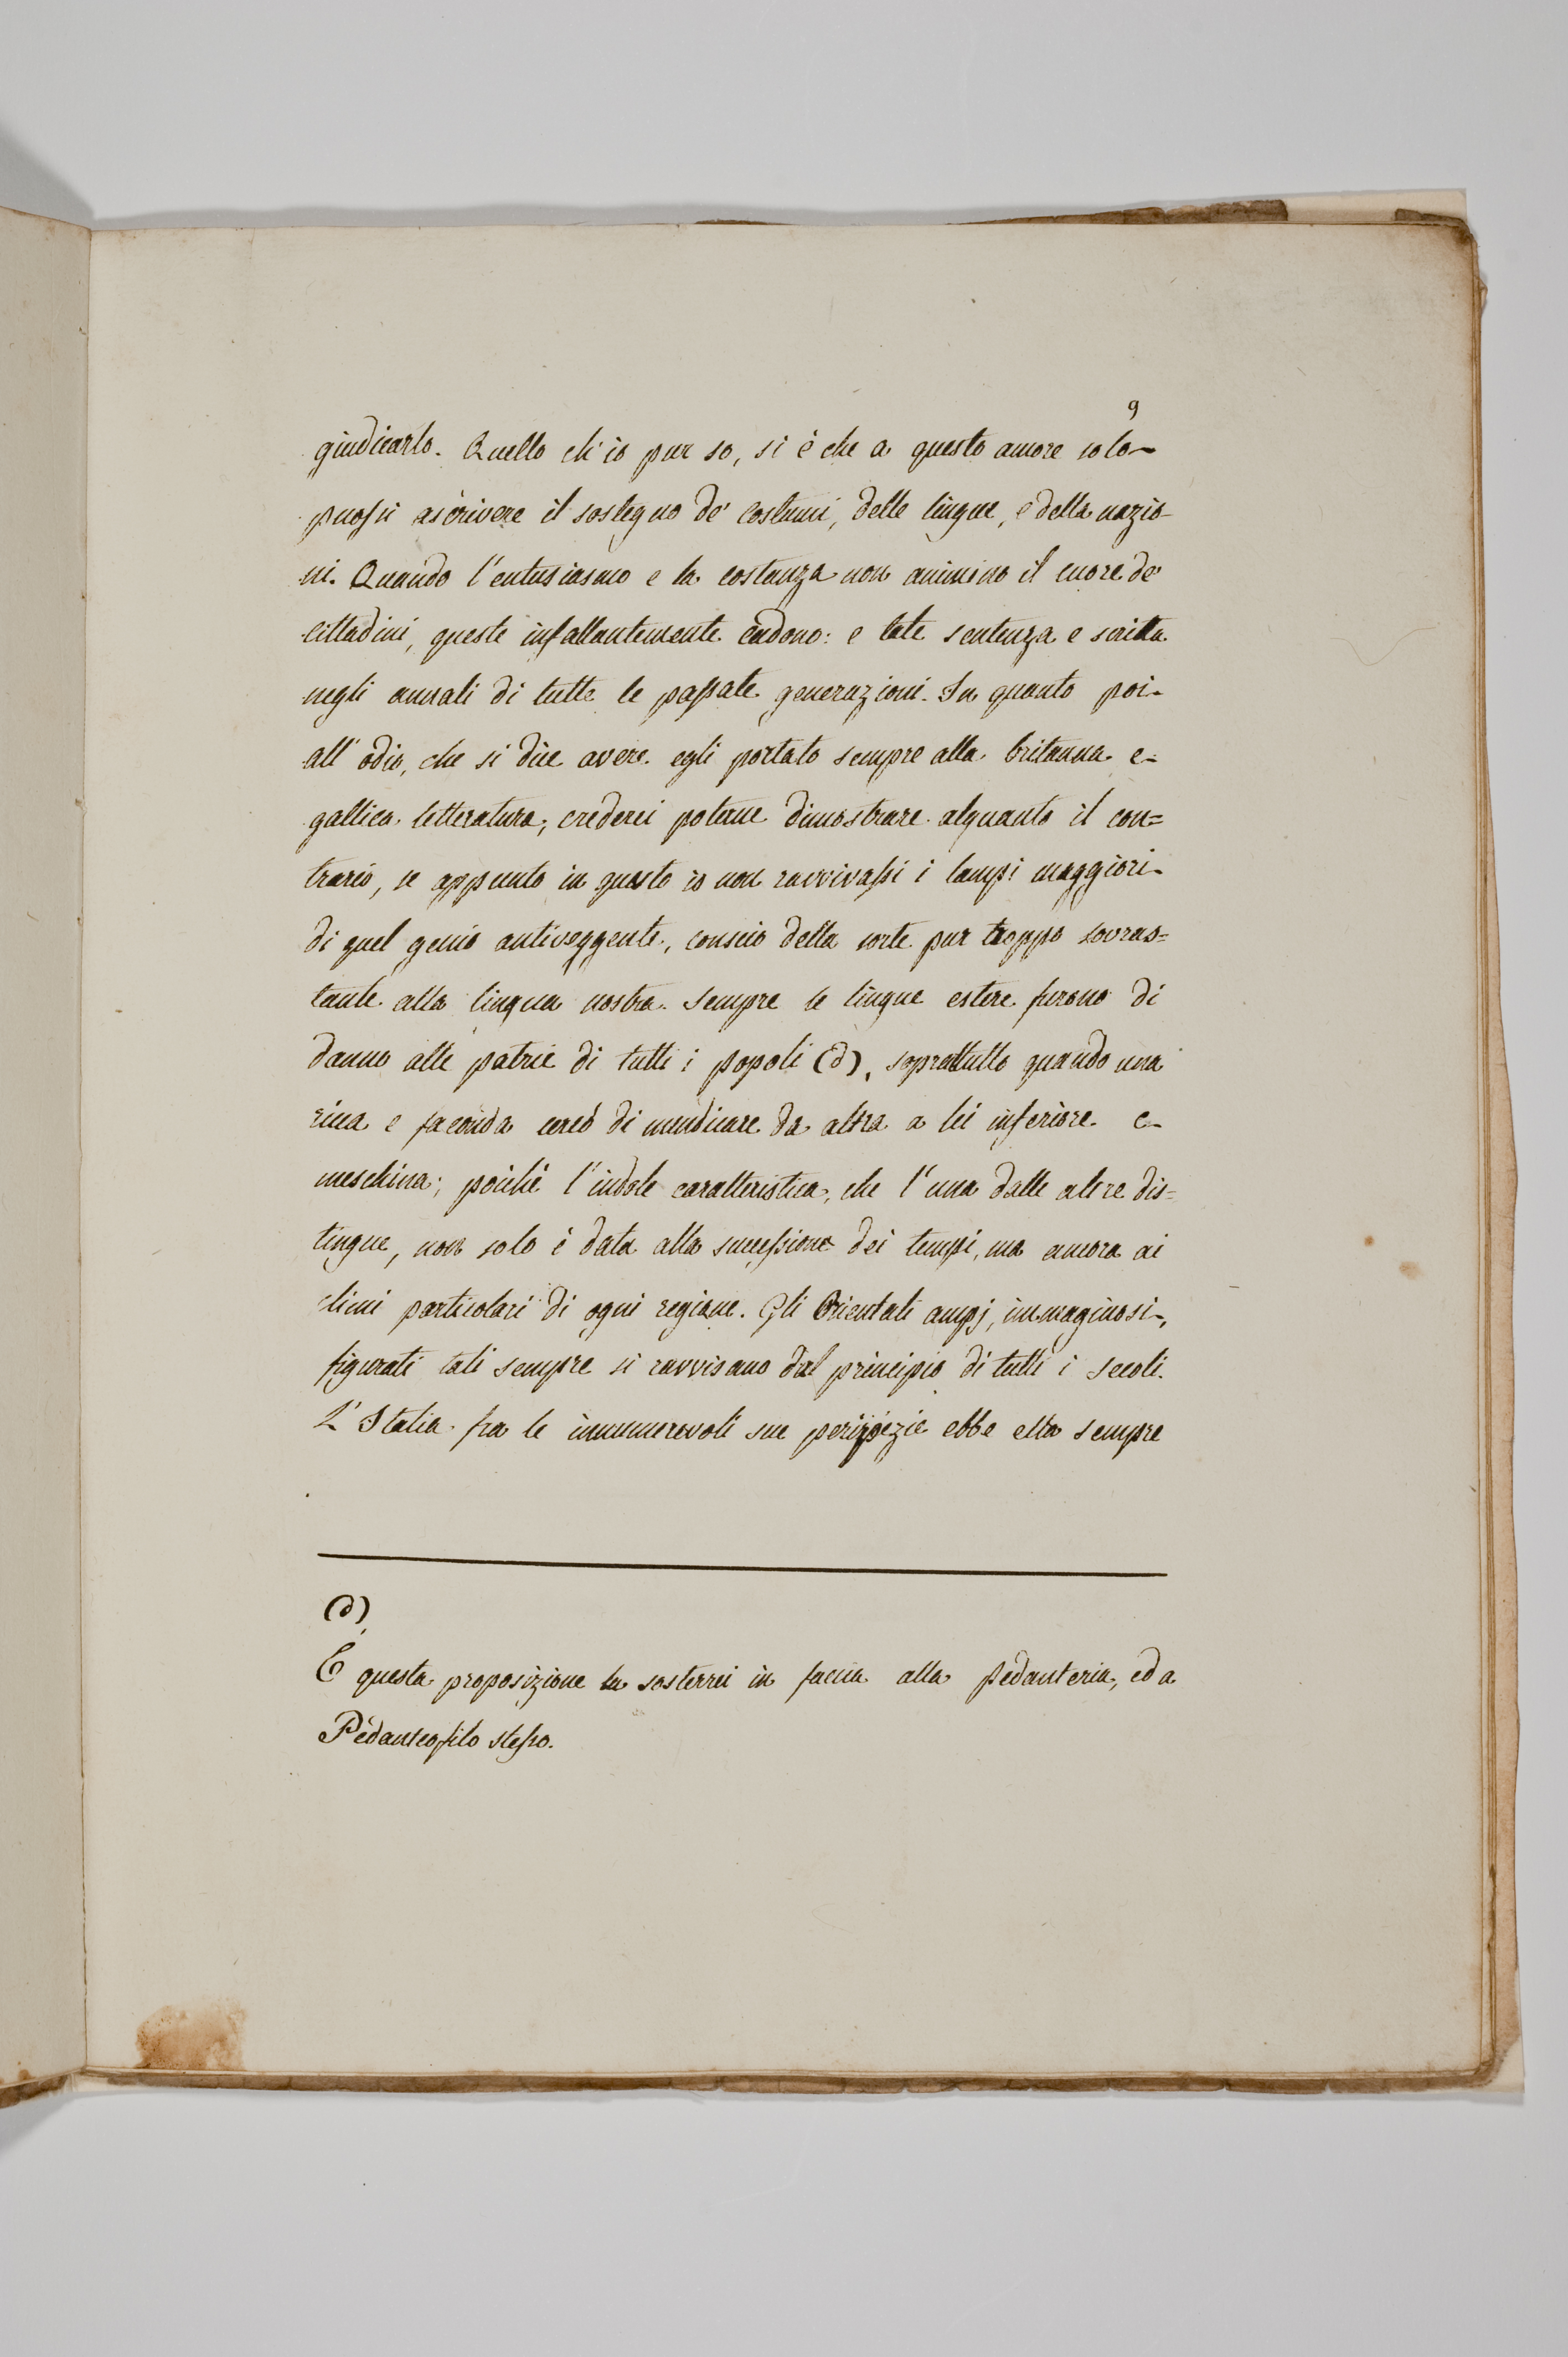 9
giudicarlo. Quello ch'io pur so, si è che a questo amore solo
puossi ascrivere il sostegno de' costumi, delle lingue, e della nazio-
ni. Quando l'entusiasmo e la costanza non animino il cuore de'
cittadini, queste infallantemente cadono: e tale sentenza e scritta
negli annali di tutte le passate generazioni. In quanto poi
all'odio, che si dice avere egli portato sempre alla britanna e
gallica letteratura, crederei poterne dimostrare alquanto il con=
trario, se appunto in questo io non ravvivassi i lampi maggiori
di quel genio antiveggente, conscio della sorte pur troppo sovras=
tante alla lingua nostra. Sempre le lingue estere furono di
danno alle patrie di tutti i popoli (d), soprattutto quando una
ricca e faconda cercò di mendicare da altra a lei inferiore e
meschina; poichè l'indole caratteristica, che l'una dalle altre dis=
tingue, non solo è data alla successione dei tempi, ma ancora ai
climi particolari di ogni regione. Gli Orientali ampj, immaginosi,
figurati tali sempre si ravvisano dal principio di tutti i secoli.
L'Italia fra le innumerevoli sue peripezie ebbe ella sempre
(d)
E questa proposizione la sosterrei in faccia alla Pedanteria, ed a
Pedanteofilo stesso.